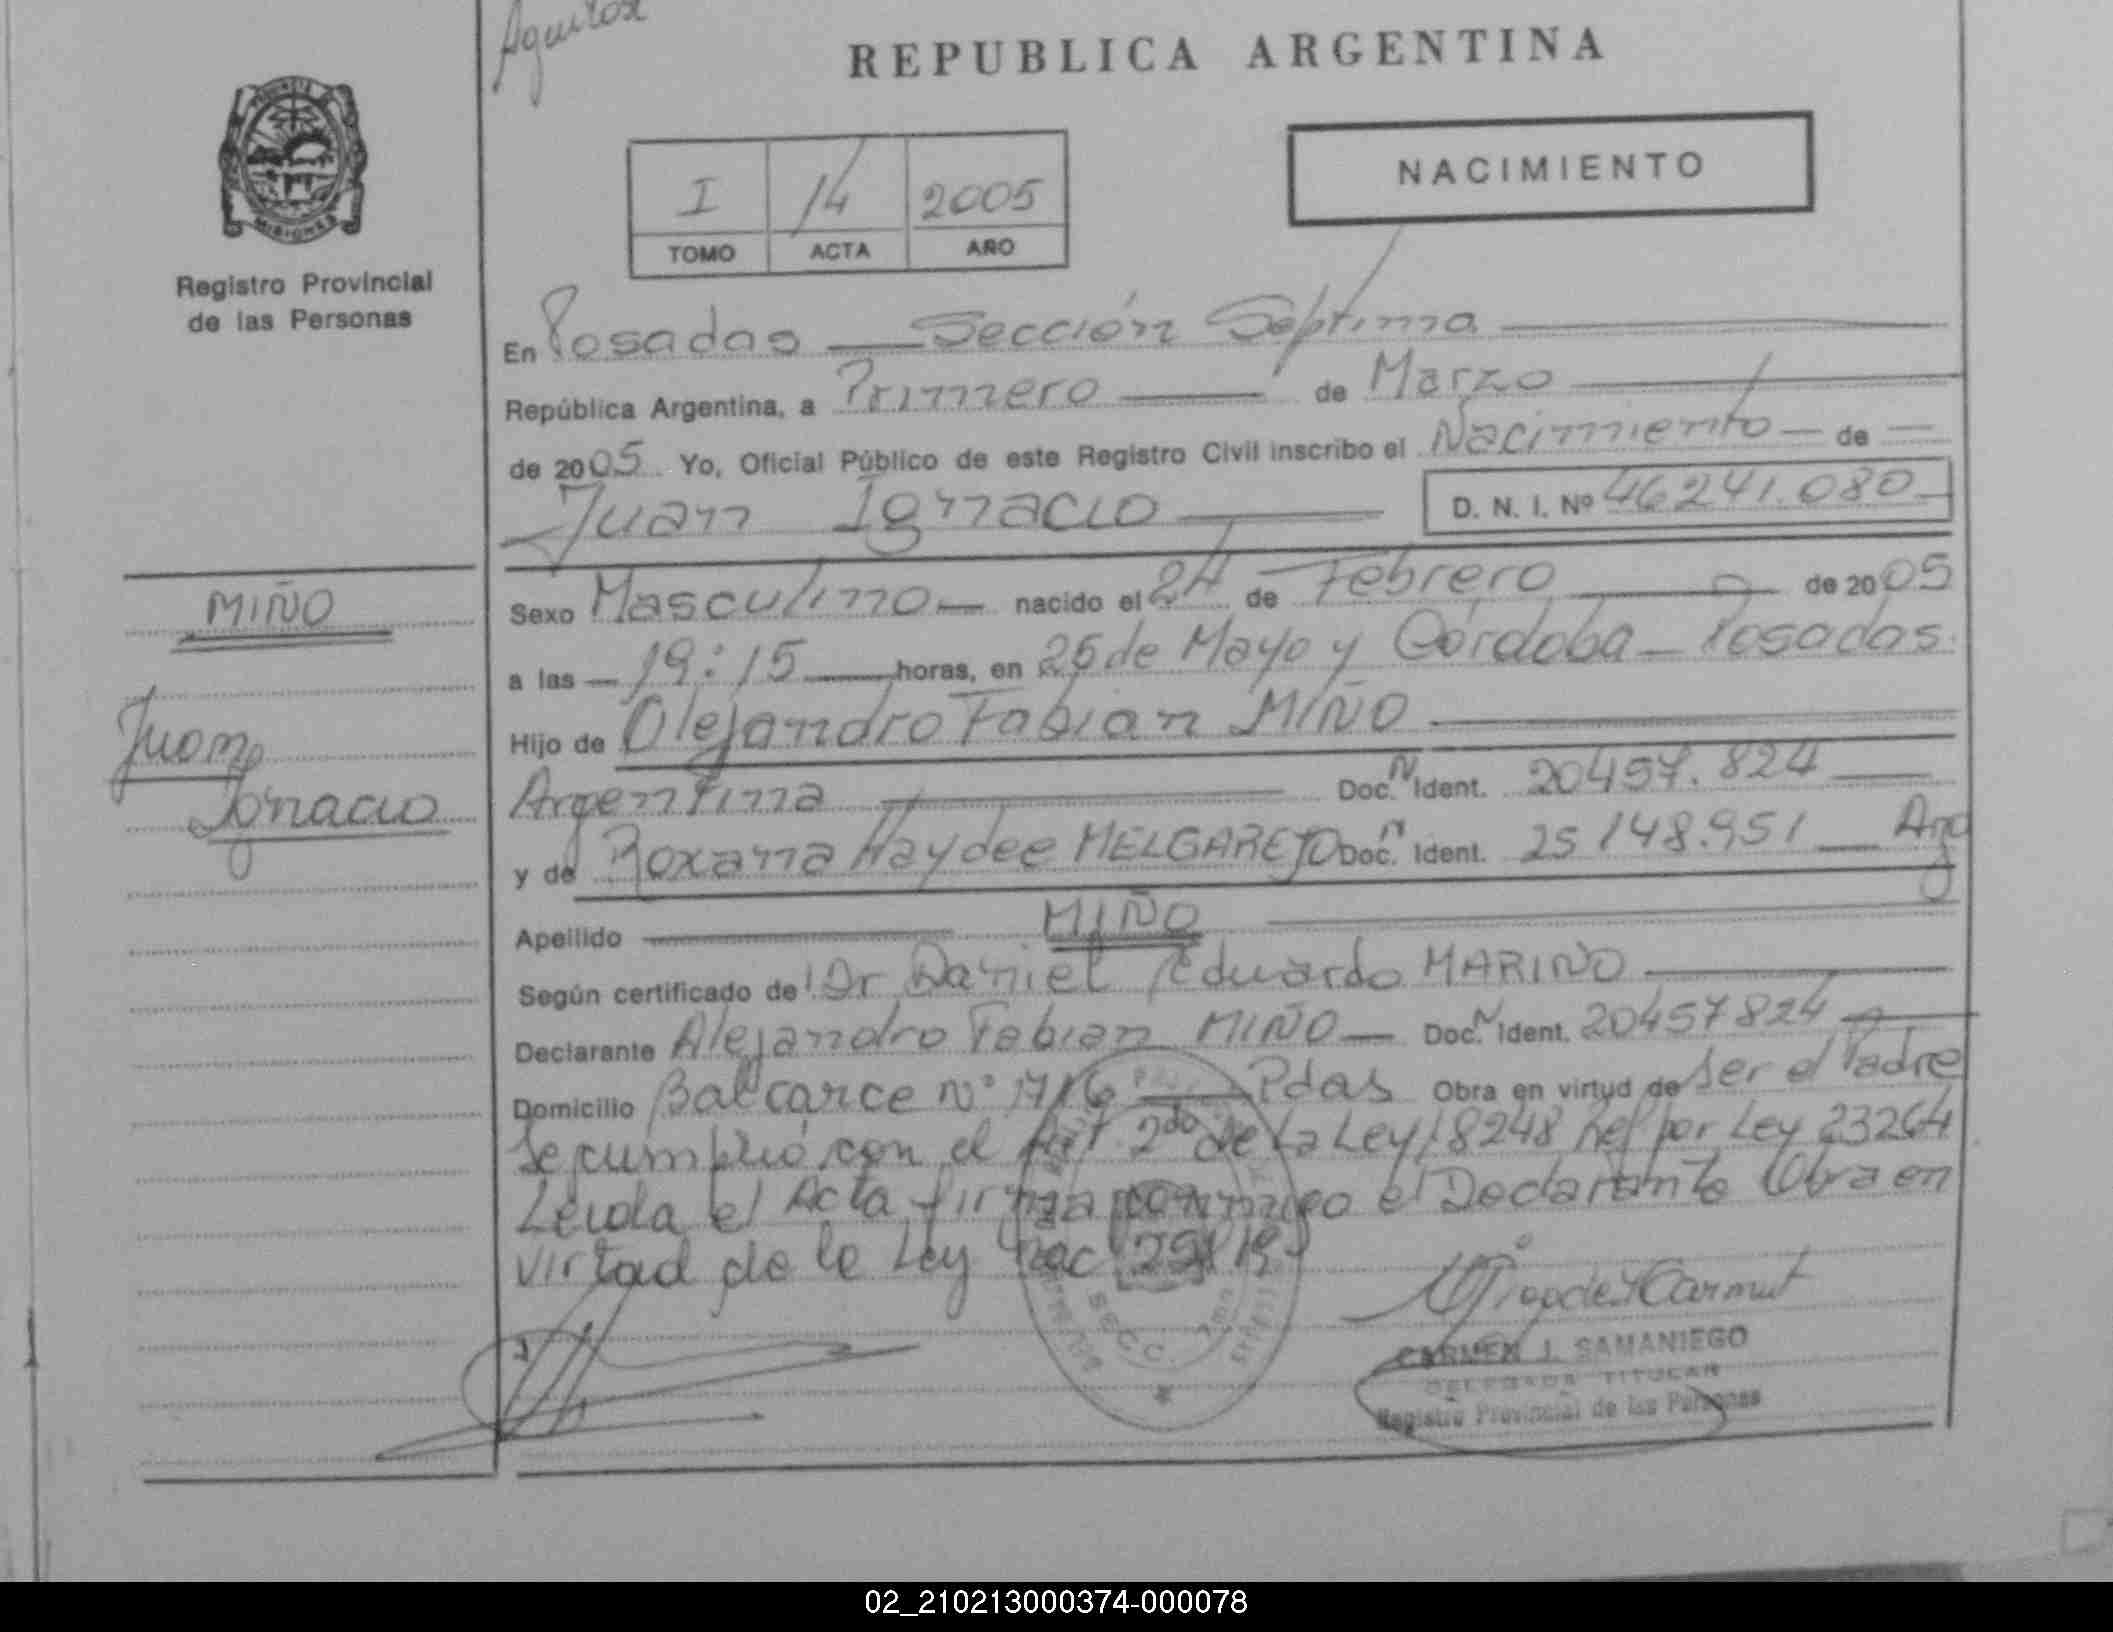 Aguilar
REPUBLICA ARGENTINA
PROVINCIA DE
MISIONES
Registro Provincial
de las Personas
I 14 2005
TOMO ACTA AÑO
NACIMIENTO
En Posadas — Sección Septima
República Argentina, a Primero — de Marzo
de 2005 Yo, Oficial Público de este Registro Civil inscribo el Nacimiento — de —
Juan Ignacio — D. N. I. Nº 46241.080
MIÑO
Juan
Ignacio
Sexo Masculino — nacido el 24 de Febrero — de 2005
a las — 19:15 — horas, en 25 de Mayo y Córdoba — Posadas.
Hijo de Alejandro Fabian MIÑO
Argentina — Doc. N Ident. 20457.824 —
y de Roxana Haydee MELGAREJO Doc. N Ident. 25148.951 — Arg
Apellido — MIÑO
Según certificado de Dr Daniel Eduardo MARIÑO
Declarante Alejandro Fabian MIÑO — Doc. N Ident. 20457824 —
Domicilio Balcarce Nº 1716 — Pdas Obra en virtud de ser el Padre
Se cumplió con el Art. 2do de la Ley 18248 Ref por Ley 23264
Leida el Acta firma conmigo el Declarante Obra en
virtud de la Ley Nac
SECC. 7ma
CARMEN J. SAMANIEGO
DELEGADA TITULAR
Registro Provincial de las Personas
02_210213000374-000078